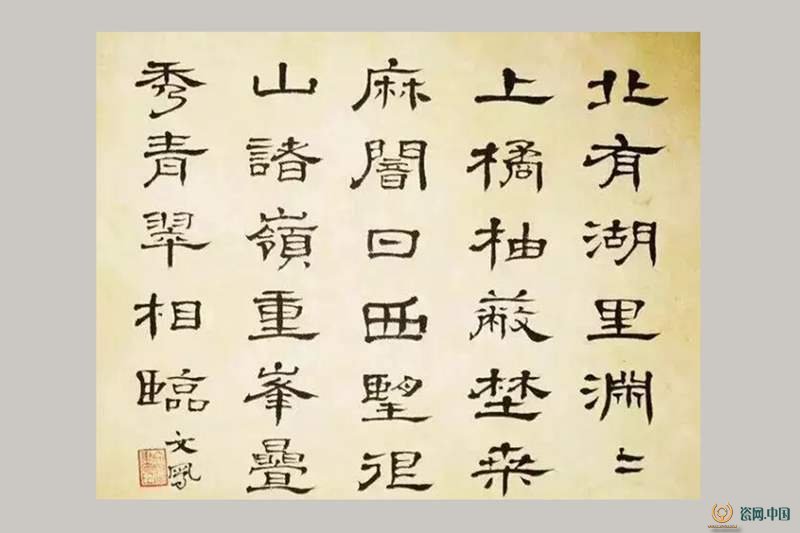 北有湖里淵〻
上橘柚蔽埜桒
麻闇日西望佷
山諸嶺重峯疊
秀青翠相臨
文鳳
瓷网.中国